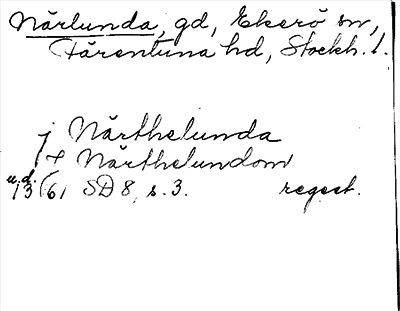 Närlunda, gd, Ekerö sn,
Färentuna hd, Stockh. l.
j Närthelunda
j+ Närthelundom
u.d. 1361 SD 8, s. 3. regest.